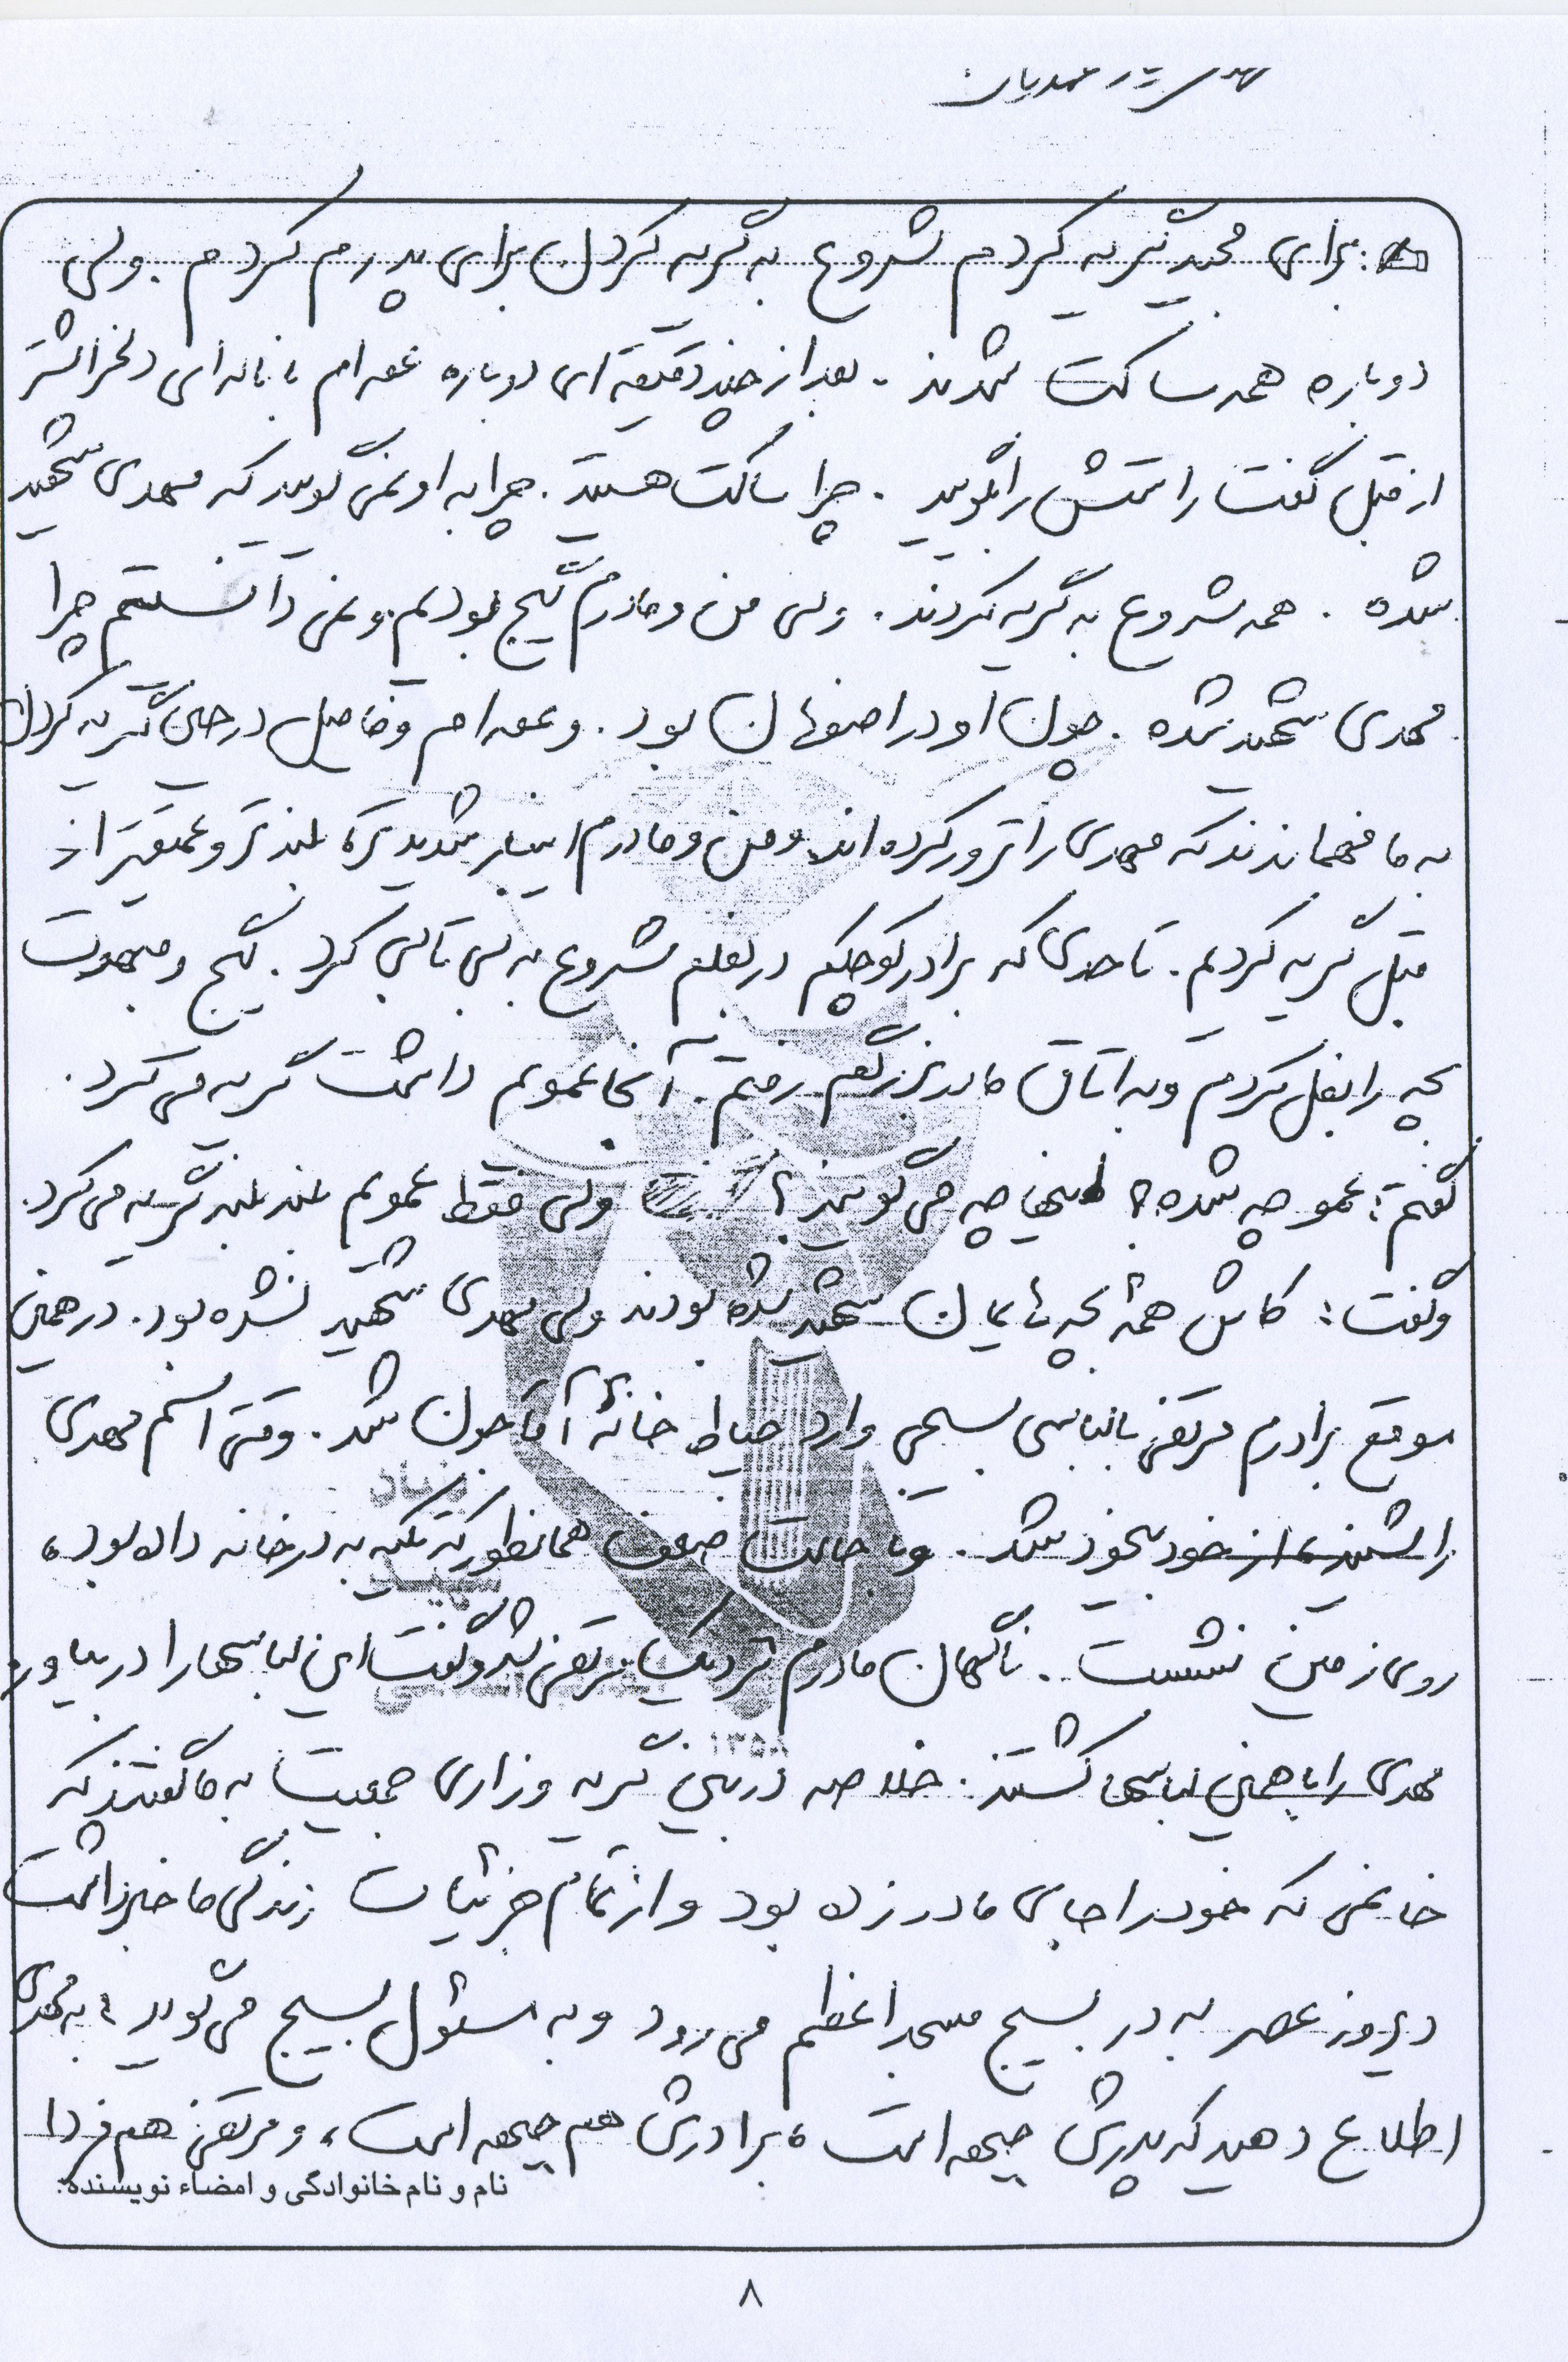 برای مجید گریه کردم شروع به گریه کردن برای پدرم کردم. ولی
دوباره همه ساکت شدند. بعد از چند دقیقه ای دوباره عمه ام با ناله ای دلخراشتر
از قبل گفت راستش را بگویید. چرا ساکت هستید. چرا به او نمی گویید که مهدی شهید
شده. همه شروع به گریه کردند. ولی من و مادرم گیج بودیم و نمی دانستم چرا
مهدی شهید شده. چون او در اصفهان بود. و عمه ام و فامیل در حین گریه کردن
به ما فهماندند که مهدی را ترور کرده اند و من و مادرم اینبار شدیدتر، بلندتر و عمیقتر از
قبل گریه کردیم. تا حدی که برادر کوچکم در بغلم شروع به بی تابی کرد. گیج و مبهوت
بچه را بغل کردم و به اتاق مادربزرگم رفتم. آنجا عمویم داشت گریه می کرد.
گفتم: عمو چه شده؟ اینها چه می گویند؟ ولی فقط عمویم بلند بلند گریه می کرد.
و گفت: کاش همۀ بچه هایمان شهید شده بودند ولی مهدی شهید نشده بود. در همین
موقع برادرم مرتضی با لباس بسیجی وارد حیاط خانۀ آقاجون شد. وقتی اسم مهدی
را شنید، از خود بیخود شد. و با حالت ضعف همانطور که تکیه به در خانه داده بود،
روی زمین نشست. ناگهان مادرم نزدیک مرتضی شد و گفت این لباسها را در بیاور
مهدی را با همین لباسها کشتند. خلاصه در بین گریه و زاری جمعیت به ما گفتند که
خانمی که خود را جای مادر زده بود و از تمام جزئیات زندگی ما خبر داشت
دیروز عصر به در بسیج مسجد اعظم می رود و به مسئول بسیج می گوید: به مهدی
اطلاع دهید که پدرش جبهه است، برادرش هم جبهه است، و مرتضی هم فردا
نام و نام خانوادگی و امضاء نویسنده:
۸
بنیاد
شهید
۱۳۵۸